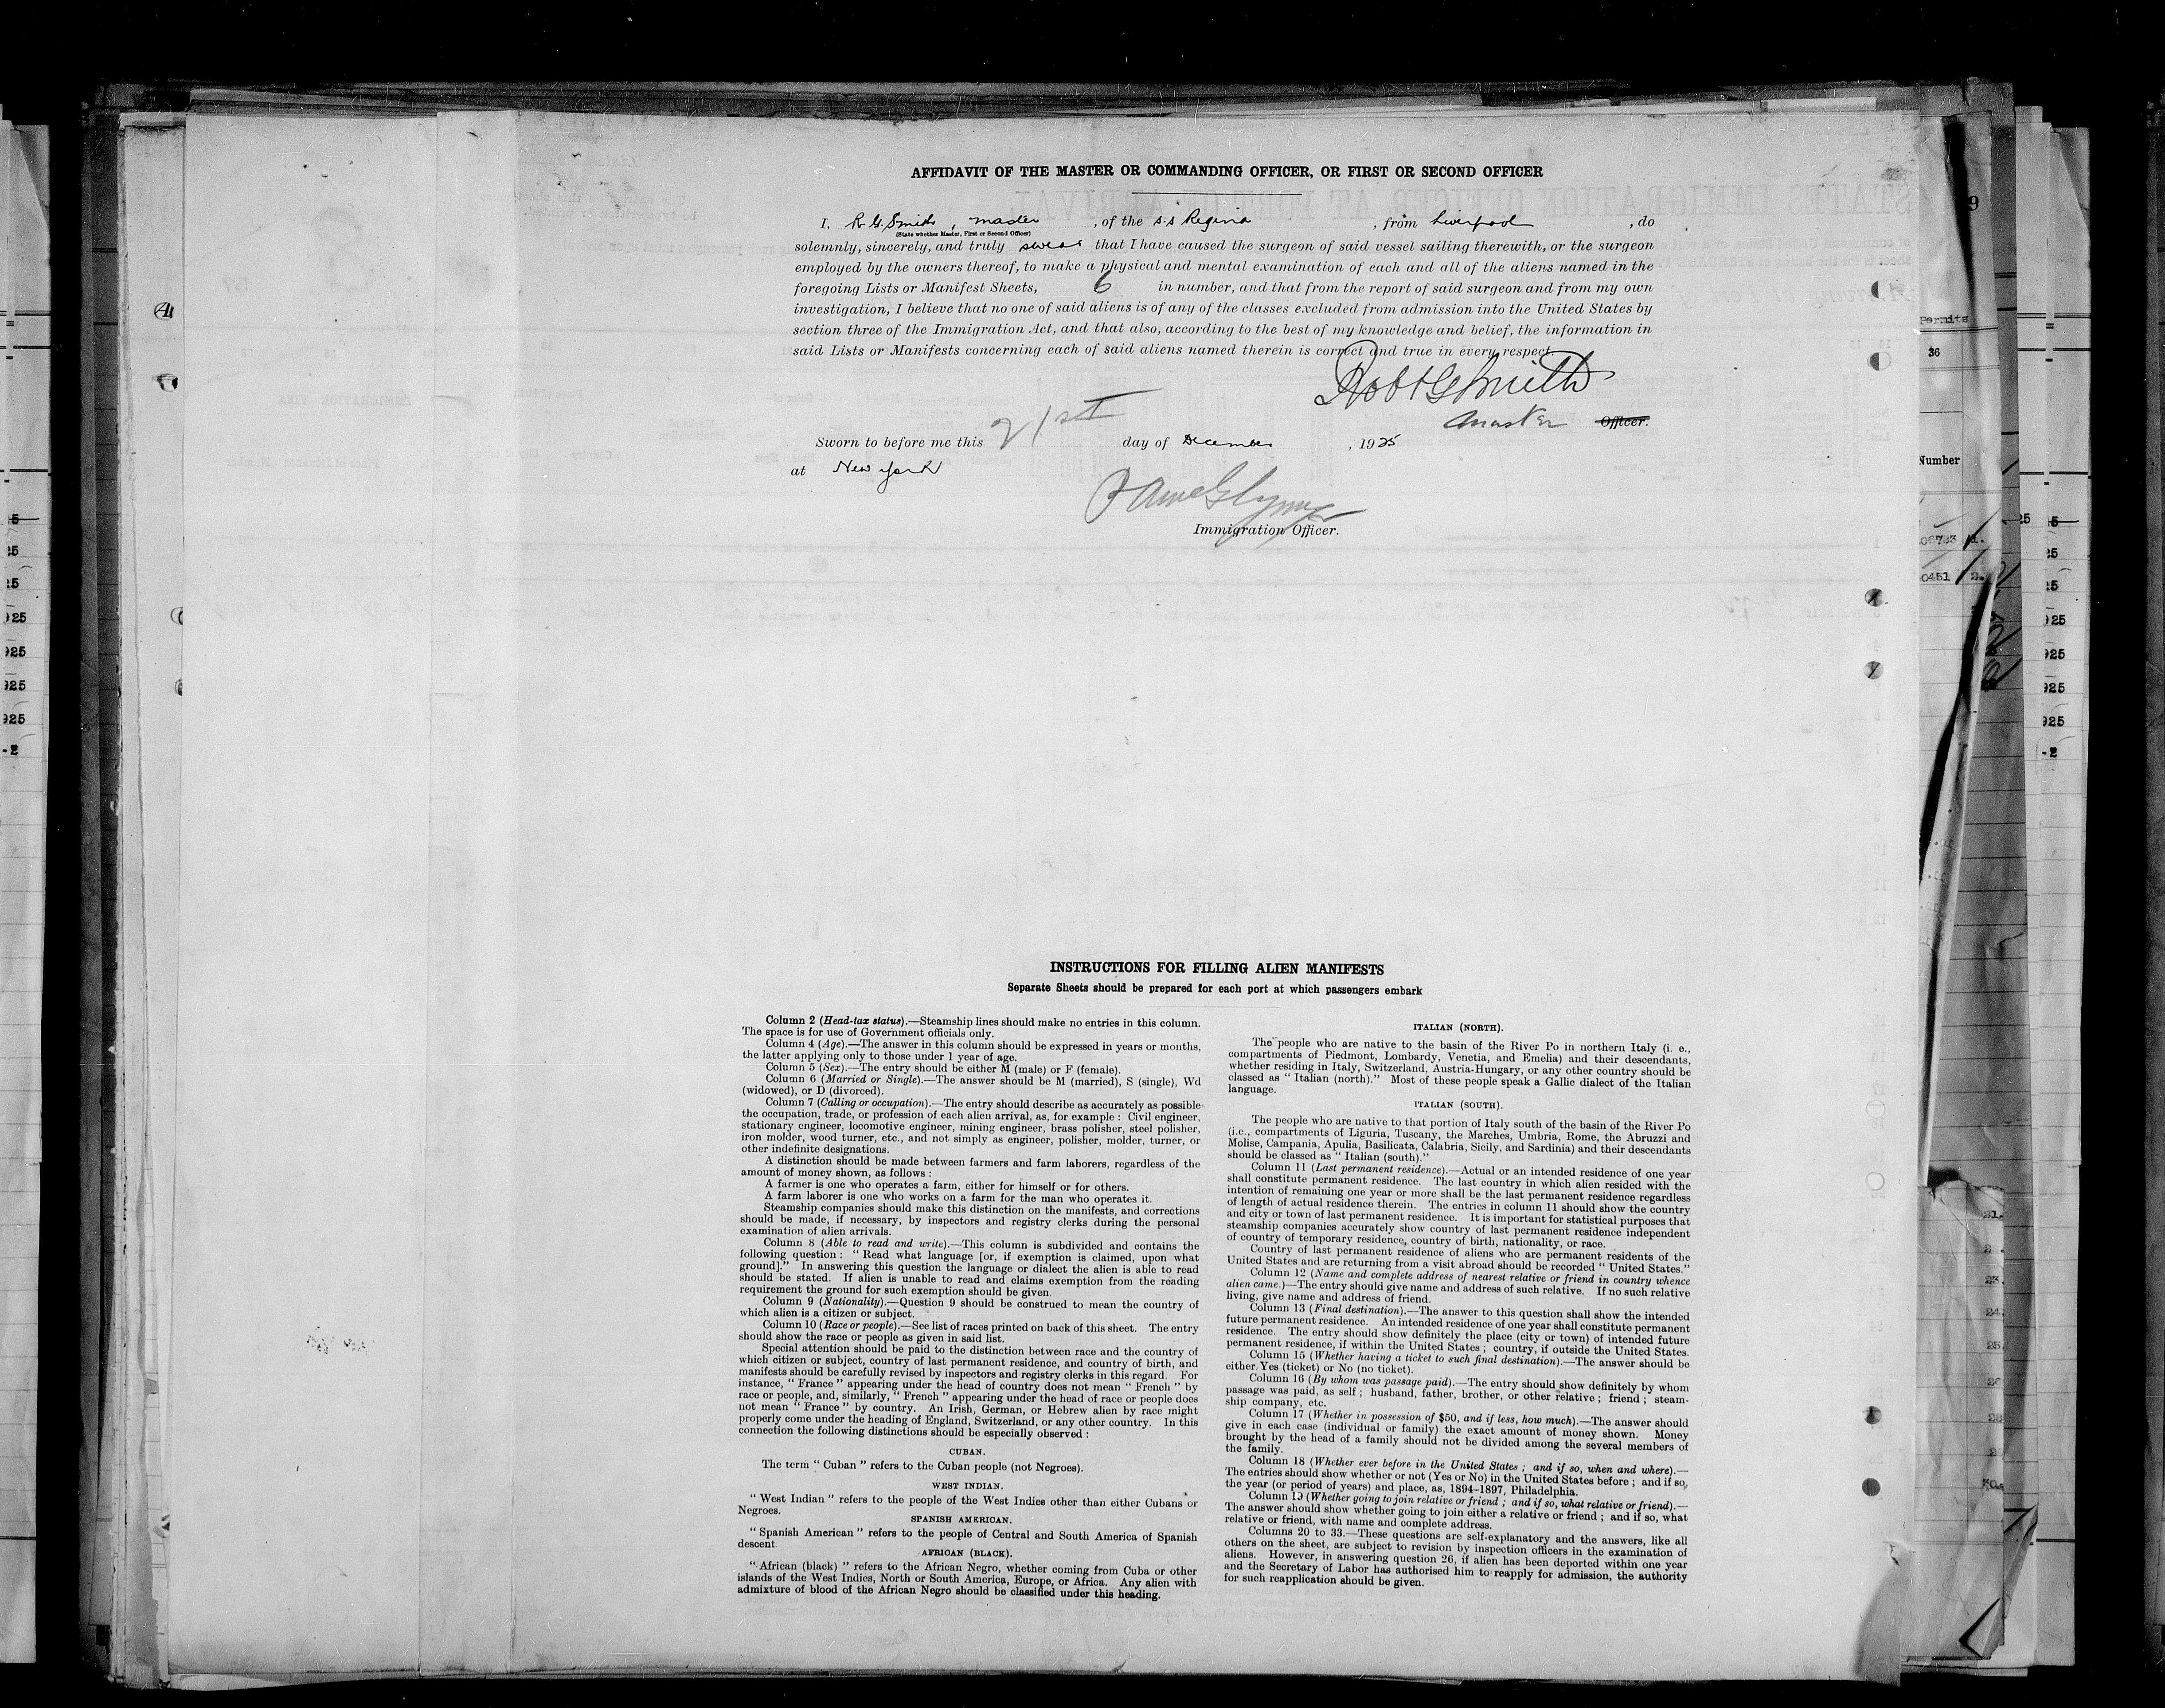 AFFIDAVIT OF THE MASTER OR COMMANDING OFFICER, OR FIRST OR SECOND OFFICER
I, R. G. Smith, master, of the s.s Regina, from Liverpool, do
(State whether Master, First or Second Officer)
solemnly, sincerely, and truly swear that I have caused the surgeon of said vessel sailing therewith, or the surgeon
employed by the owners thereof, to make a physical and mental examination of each and all of the aliens named in the
foregoing Lists or Manifest Sheets, 6 in number, and that from the report of said surgeon and from my own
investigation, I believe that no one of said aliens is of any of the classes excluded from admission into the United States by
section three of the Immigration Act, and that also, according to the best of my knowledge and belief, the information in
said Lists or Manifests concerning each of said aliens named therein is correct and true in every respect.
Robt G Smith
Master Officer.
Sworn to before me this 21st day of December, 1925
at New York
Immigration Officer.
INSTRUCTIONS FOR FILLING ALIEN MANIFESTS
Separate Sheets should be prepared for each port at which passengers embark
Column 2 (Head-tax status).—Steamship lines should make no entries in this column.
The space is for use of Government officials only.
Column 4 (Age).—The answer in this column should be expressed in years or months,
the latter applying only to those under 1 year of age.
Column 5 (Sex).—The entry should be either M (male) or F (female).
Column 6 (Married or Single).—The answer should be M (married), S (single), Wd
(widowed), or D (divorced).
Column 7 (Calling or occupation).—The entry should describe as accurately as possible
the occupation, trade, or profession of each alien arrival, as, for example : Civil engineer,
stationary engineer, locomotive engineer, mining engineer, brass polisher, steel polisher,
iron molder, wood turner, etc., and not simply as engineer, polisher, molder, turner, or
other indefinite designations.
A distinction should be made between farmers and farm laborers, regardless of the
amount of money shown, as follows :
A farmer is one who operates a farm, either for himself or for others.
A farm laborer is one who works on a farm for the man who operates it.
Steamship companies should make this distinction on the manifests, and corrections
should be made, if necessary, by inspectors and registry clerks during the personal
examination of alien arrivals.
Column 8 (Able to read and write).—This column is subdivided and contains the
following question : “ Read what language [or, if exemption is claimed, upon what
ground].” In answering this question the language or dialect the alien is able to read
should be stated. If alien is unable to read and claims exemption from the reading
requirement the ground for such exemption should be given.
Column 9 (Nationality).—Question 9 should be construed to mean the country of
which alien is a citizen or subject.
Column 10 (Race or people).—See list of races printed on back of this sheet. The entry
should show the race or people as given in said list.
Special attention should be paid to the distinction between race and the country of
which citizen or subject, country of last permanent residence, and country of birth, and
manifests should be carefully revised by inspectors and registry clerks in this regard. For
instance, “ France ” appearing under the head of country does not mean “ French ” by
race or people, and, similarly, “ French ” appearing under the head of race or people does
not mean “ France ” by country. An Irish, German, or Hebrew alien by race might
properly come under the heading of England, Switzerland, or any other country. In this
connection the following distinctions should be especially observed :
CUBAN.
The term “ Cuban ” refers to the Cuban people (not Negroes).
WEST INDIAN.
“ West Indian ” refers to the people of the West Indies other than either Cubans or
Negroes.
SPANISH AMERICAN.
“ Spanish American ” refers to the people of Central and South America of Spanish
descent
AFRICAN (BLACK).
“ African (black) ” refers to the African Negro, whether coming from Cuba or other
islands of the West Indies, North or South America, Europe, or Africa. Any alien with
admixture of blood of the African Negro should be classified under this heading.
ITALIAN (NORTH).
The people who are native to the basin of the River Po in northern Italy (i. e.,
compartments of Piedmont, Lombardy, Venetia, and Emelia) and their descendants,
whether residing in Italy, Switzerland, Austria-Hungary, or any other country should be
classed as “ Italian (north).” Most of these people speak a Gallic dialect of the Italian
language.
ITALIAN (SOUTH).
The people who are native to that portion of Italy south of the basin of the River Po
(i.e., compartments of Liguria, Tuscany, the Marches, Umbria, Rome, the Abruzzi and
Molise, Campania, Apulia, Basilicata, Calabria, Sicily, and Sardinia) and their descendants
should be classed as “ Italian (south).”
Column 11 (Last permanent residence).—Actual or an intended residence of one year
shall constitute permanent residence. The last country in which alien resided with the
intention of remaining one year or more shall be the last permanent residence regardless
of length of actual residence therein. The entries in column 11 should show the country
and city or town of last permanent residence. It is important for statistical purposes that
steamship companies accurately show country of last permanent residence independent
of country of temporary residence, country of birth, nationality, or race.
Country of last permanent residence of aliens who are permanent residents of the
United States and are returning from a visit abroad should be recorded “ United States.”
Column 12 (Name and complete address of nearest relative or friend in country whence
alien came.)—The entry should give name and address of such relative. If no such relative
living, give name and address of friend.
Column 13 (Final destination).—The answer to this question shall show the intended
future permanent residence. An intended residence of one year shall constitute permanent
residence. The entry should show definitely the place (city or town) of intended future
permanent residence, if within the United States ; country, if outside the United States.
Column 15 (Whether having a ticket to such final destination).—The answer should be
either Yes (ticket) or No (no ticket).
Column 16 (By whom was passage paid).—The entry should show definitely by whom
passage was paid, as self ; husband, father, brother, or other relative ; friend ; steam-
ship company, etc.
Column 17 (Whether in possession of $50, and if less, how much).—The answer should
give in each case (individual or family) the exact amount of money shown. Money
brought by the head of a family should not be divided among the several members of
the family.
Column 18 (Whether ever before in the United States ; and if so, when and where).—
The entries should show whether or not (Yes or No) in the United States before ; and if so,
the year (or period of years) and place, as, 1894–1897, Philadelphia.
Column 19 (Whether going to join relative or friend ; and if so, what relative or friend).—
The answer should show whether going to join either a relative or friend ; and if so, what
relative or friend, with name and complete address.
Columns 20 to 33.—These questions are self-explanatory and the answers, like all
others on the sheet, are subject to revision by inspection officers in the examination of
aliens. However, in answering question 26, if alien has been deported within one year
and the Secretary of Labor has authorised him to reapply for admission, the authority
for such reapplication should be given.
9
Permits
36
Number
0451 2.